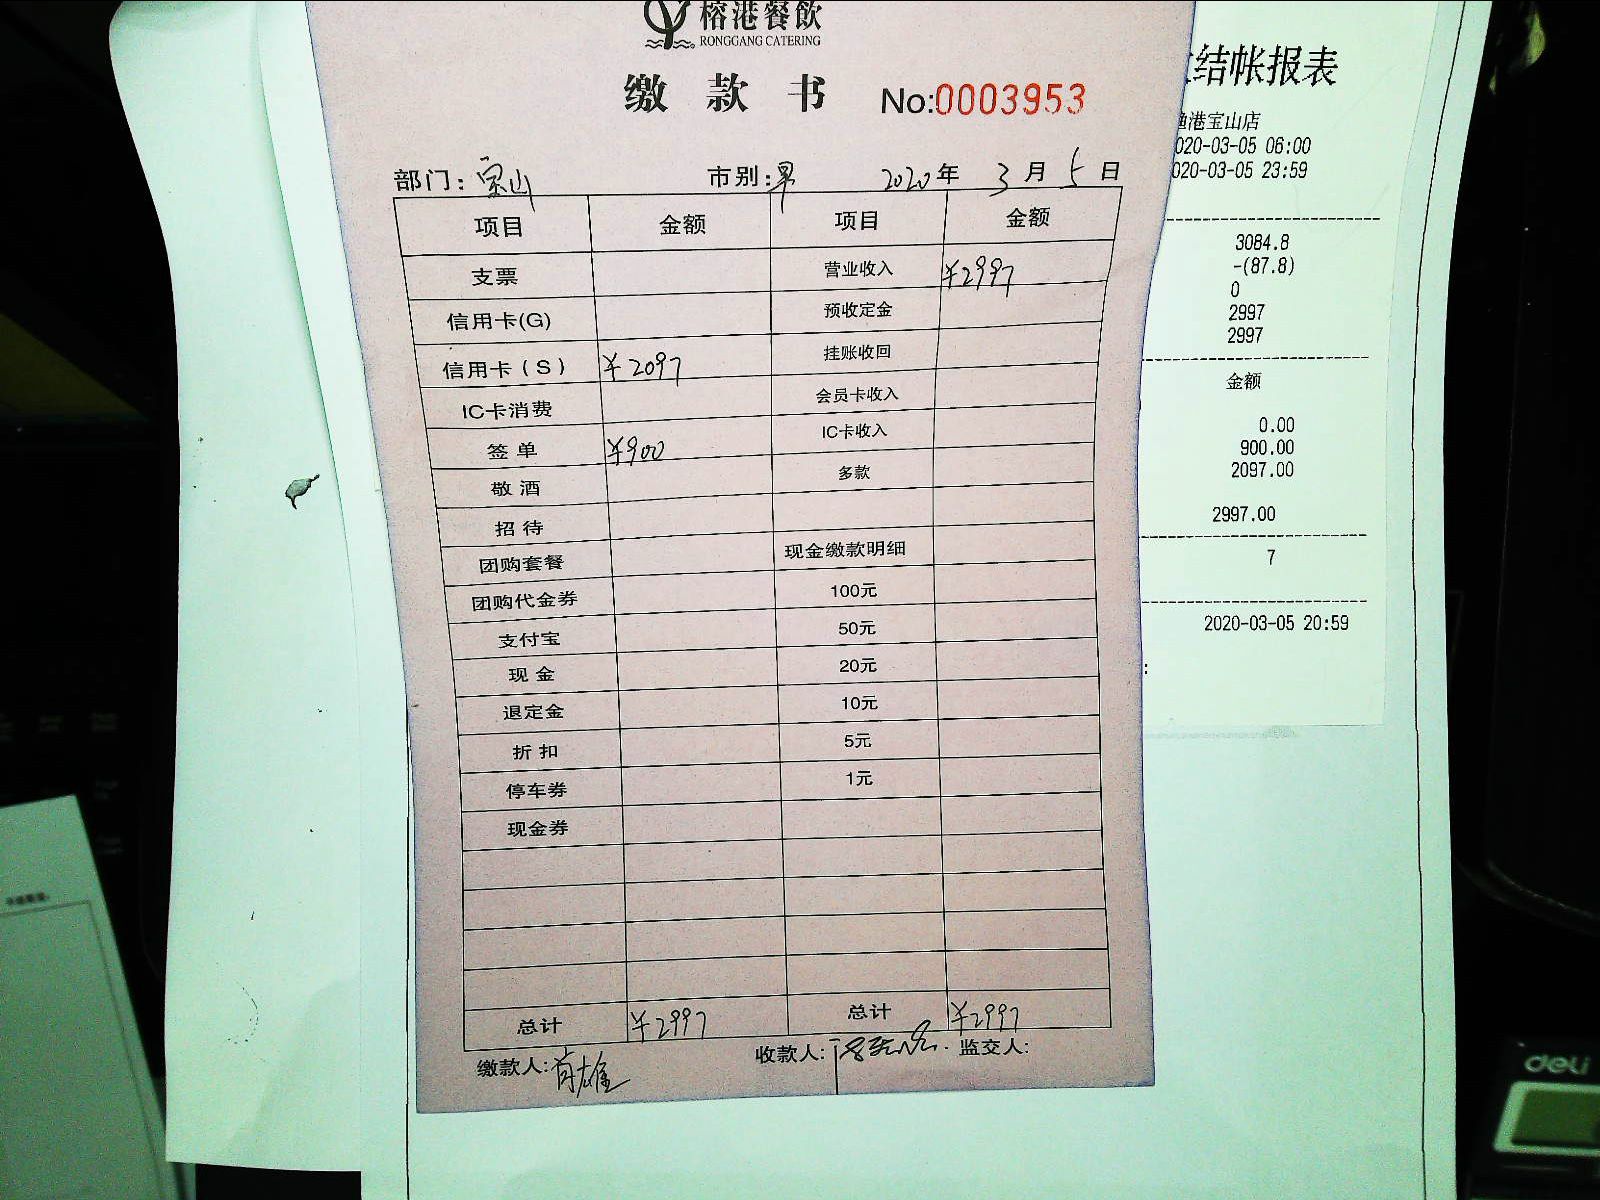 榕港餐飲
RONGGANG CATERING
缴款书 No:0003953
部门:宝山 市别:早 2020年3月5日
项目 金额 项目 金额
支票 营业收入 ¥2997
信用卡(G) 预收定金
信用卡(S) ¥2097 挂账收回
IC卡消费 会员卡收入
签单 ¥900 IC卡收入
敬酒 多款
招待
团购套餐 现金缴款明细
团购代金券 100元
支付宝 50元
现金 20元
退定金 10元
折扣 5元
停车券 1元
现金券
总计 ¥2997 总计 ¥2997
缴款人:肖雄 收款人: 监交人:
结帐报表
渔港宝山店
020-03-05 06:00
020-03-05 23:59
3084.8
-(87.8)
0
2997
2997
金额
0.00
900.00
2097.00
2997.00
7
2020-03-05 20:59
:
deli